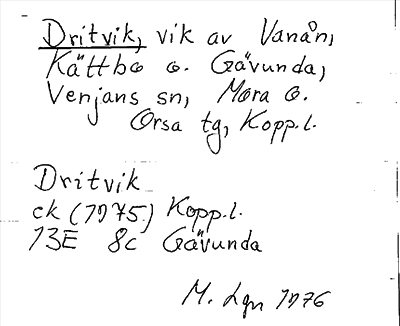 Dritvik, vik av Vanån,
Kättbo o. Gävunda,
Venjans sn, Mora o.
Orsa tg, Kopp.l.
Dritvik
ek (1975) Kopp.l.
13E 8c Gävunda
M. Lgn 1976